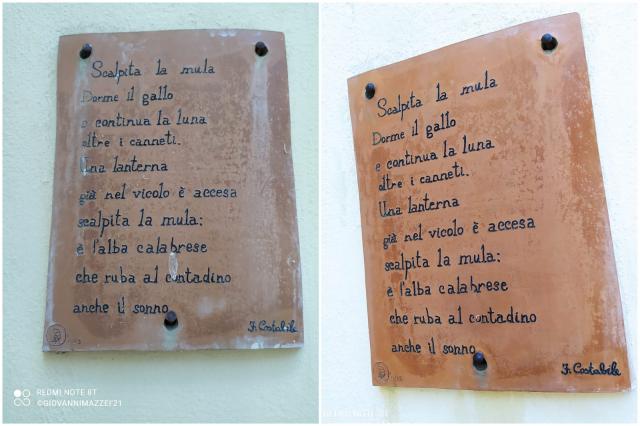 Scalpita la mula
Dorme il gallo
e continua la luna
oltre i canneti.
Una lanterna
già nel vicolo è accesa
scalpita la mula:
è l'alba calabrese
che ruba al contadino
anche il sonno
F. Costabile
REDMI NOTE 8T
©GIOVANNIMAZZEF21
Scalpita la mula
Dorme il gallo
e continua la luna
oltre i canneti.
Una lanterna
già nel vicolo è accesa
scalpita la mula:
è l'alba calabrese
che ruba al contadino
anche il sonno
F. Costabile
REDMI NOTE 8T